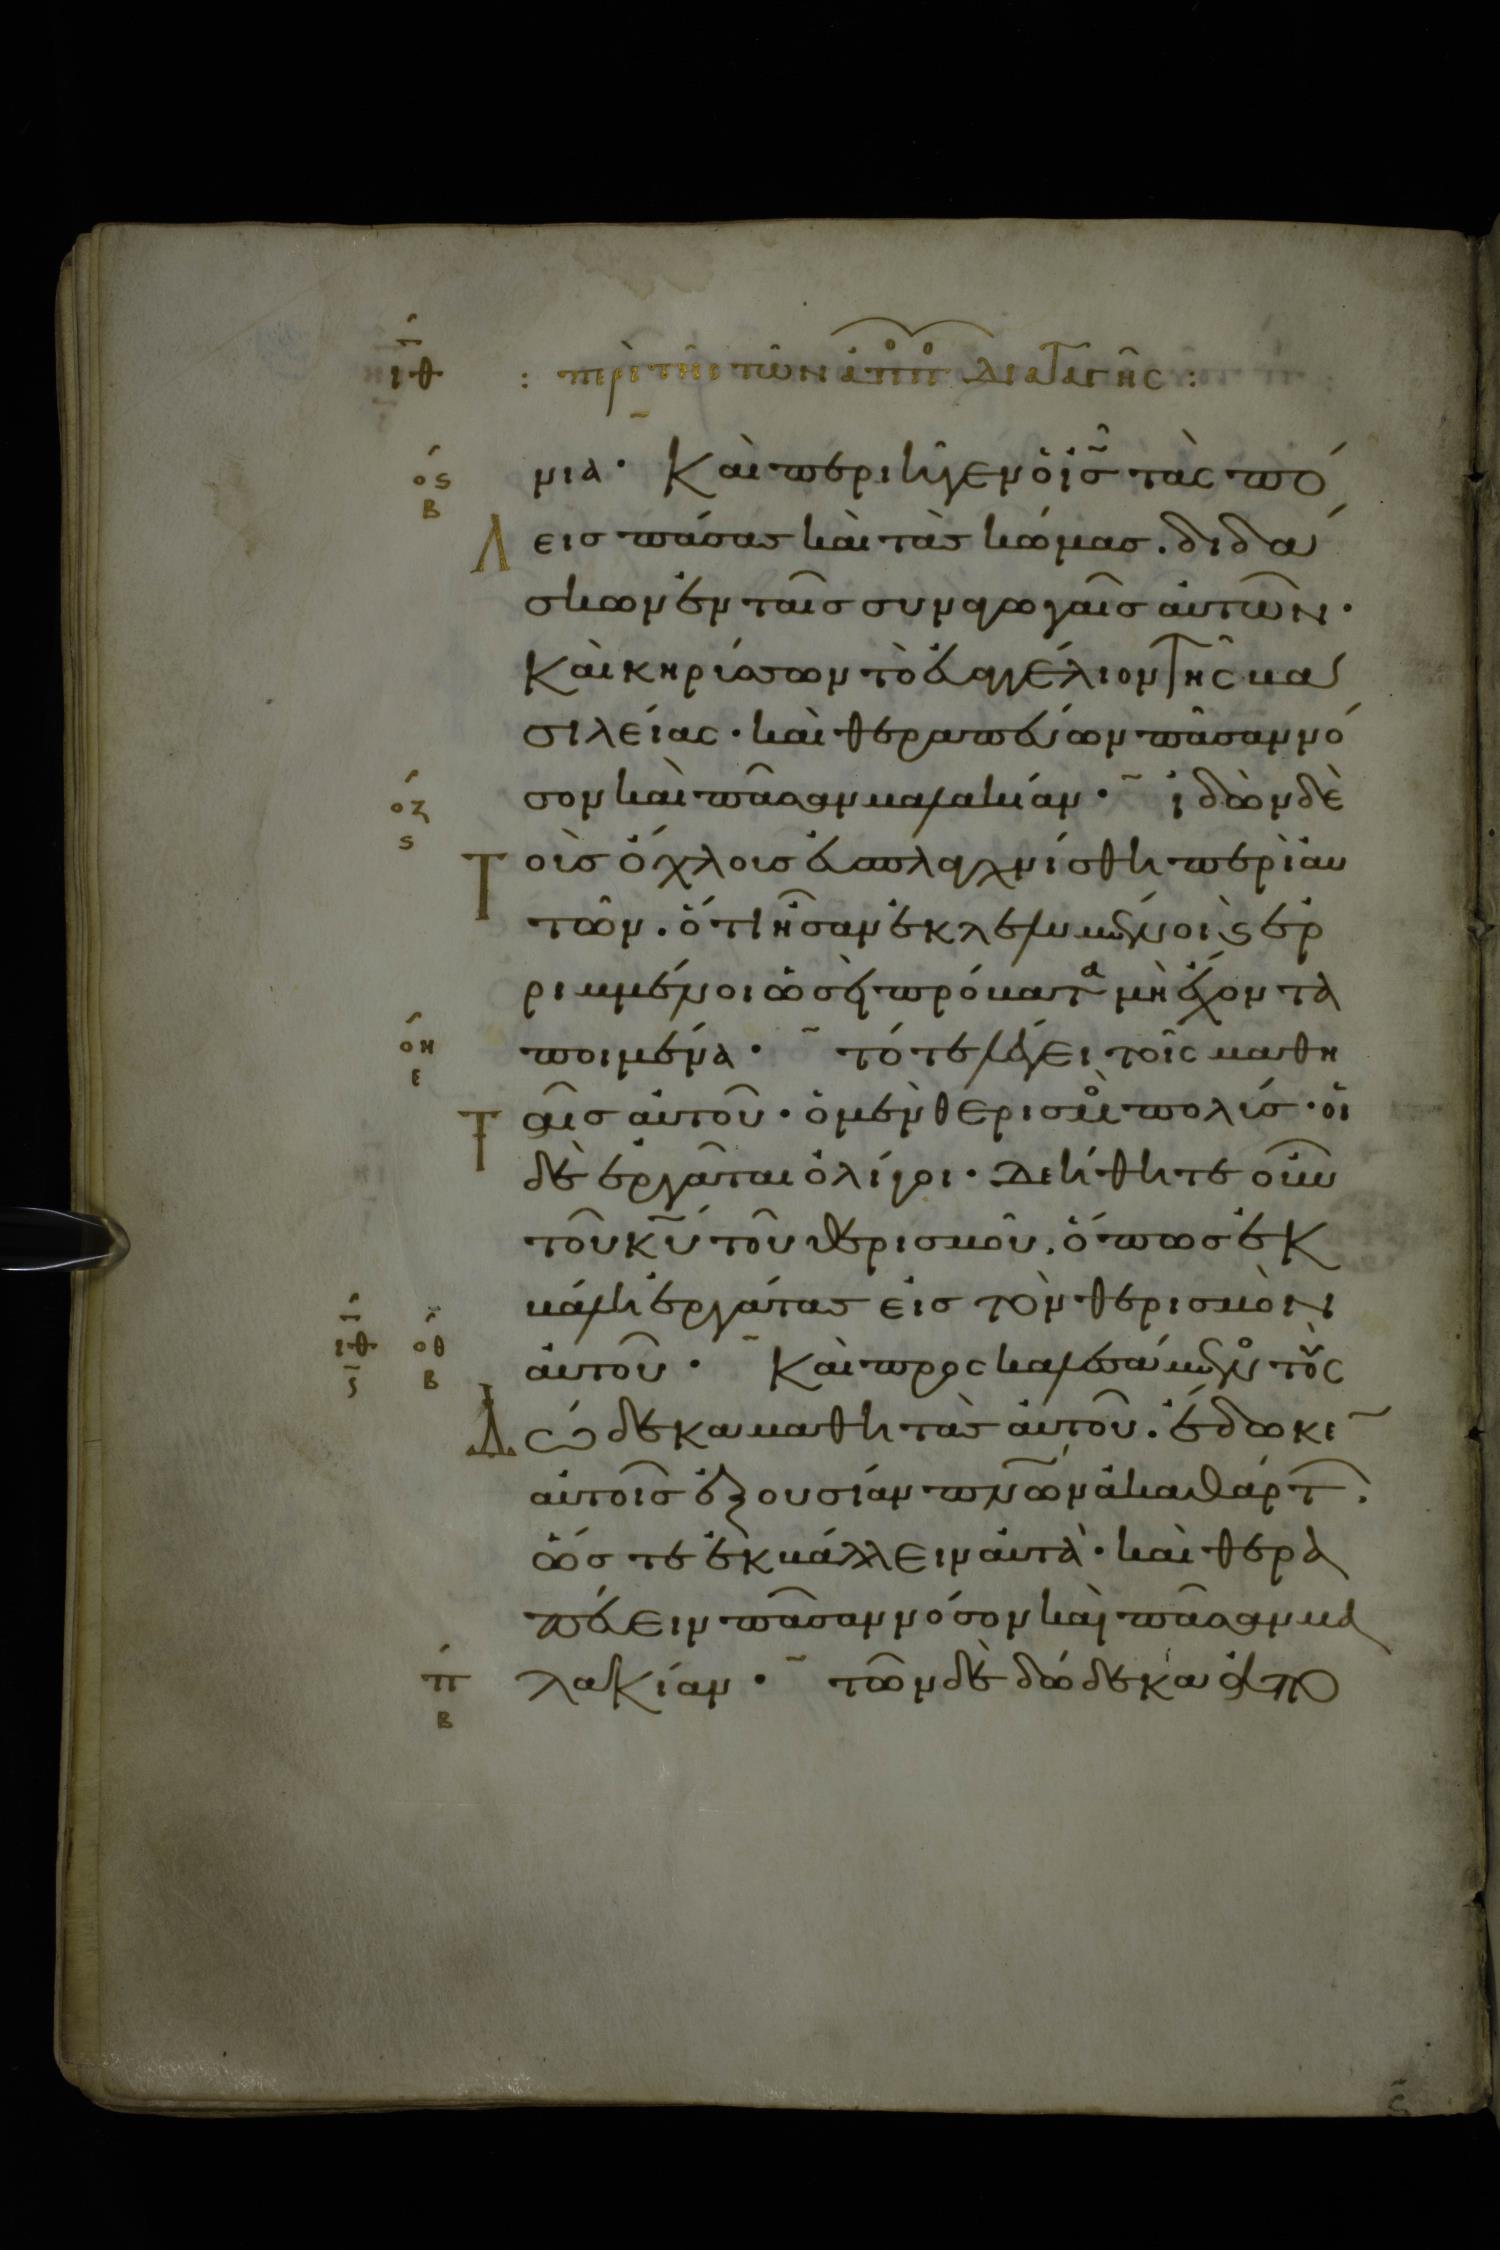 ιθ : περὶ τῆς τῶν ἀποπο διαταγῆς :
ος μια· Καὶ περιῆγεν ὁ ισ τὰς πό
β
Λεισ πάσασ καὶ τὰσ κώμασ. διδά
σκων ἐν ταῖσ συναγωγαῖσ αὐτῶν·
Καὶ κηρύσσων τὸ ἐυαγγέλιον τῆς βα
σιλείας· καὶ θεραπεύων πᾶσαν νό
οζ σον καὶ πᾶσαν μαλακίαν· ἰδὼν δὲ
ς
Τοὺσ ὄχλουσ ἐσπλαγχνίσθη περὶ ἀυ
τῶν. ὅτι ἦσαν ἐκλελυμένοι ϗ ἐρ
ριμμένοι ὡσεὶ πρόβατα μὴ ἔχοντα
οη ποιμένα· τότε λέγει τοῖς μαθη
ε
Ταῖσ αὐτοῦ· ὁ μὲν θερισμὸσ πολύσ· ὁι
δὲ ἐργάται ὀλίγοι· Δεήθητε οὖν
τοῦ κυ τοῦ θερισμοῦ. ὅπωσ ἐκ
βάλη ἐργάτασ εἰσ τὸν θερισμὸν
ιθ οθ αὐτοῦ· Καὶ προσκαλεσάμενοσ τοὺς
ς β
Δώδεκα μαθητὰσ αὐτοῦ. ἔδωκε
αὐτοῖσ ἐξουσίαν πνων ἀκαθάρτ.
ὥστε ἐκβάλλειν αὐτὰ· καὶ θερα
πεύειν πᾶσαν νόσον καὶ πᾶσαν μα
π λακίαν· τῶν δὲ δώδεκα ἀπο
β